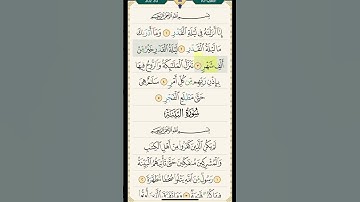 بِسْمِ اللَّهِ الرَّحْمَٰنِ الرَّحِيمِ
إِنَّا أَنزَلْنَاهُ فِي لَيْلَةِ الْقَدْرِ ١ وَمَا أَدْرَاكَ
مَا لَيْلَةُ الْقَدْرِ ٢ لَيْلَةُ الْقَدْرِ خَيْرٌ مِّنْ
أَلْفِ شَهْرٍ ٣ تَنَزَّلُ الْمَلَائِكَةُ وَالرُّوحُ فِيهَا
بِإِذْنِ رَبِّهِم مِّن كُلِّ أَمْرٍ ٤ سَلَامٌ هِيَ
حَتَّىٰ مَطْلَعِ الْفَجْرِ ٥
سُورَةُ الْبَيِّنَةِ
بِسْمِ اللَّهِ الرَّحْمَٰنِ الرَّحِيمِ
لَمْ يَكُنِ الَّذِينَ كَفَرُوا مِنْ أَهْلِ الْكِتَابِ
وَالْمُشْرِكِينَ مُنفَكِّينَ حَتَّىٰ تَأْتِيَهُمُ الْبَيِّنَةُ
١ رَسُولٌ مِّنَ اللَّهِ يَتْلُو صُحُفًا مُّطَهَّرَةً ٢